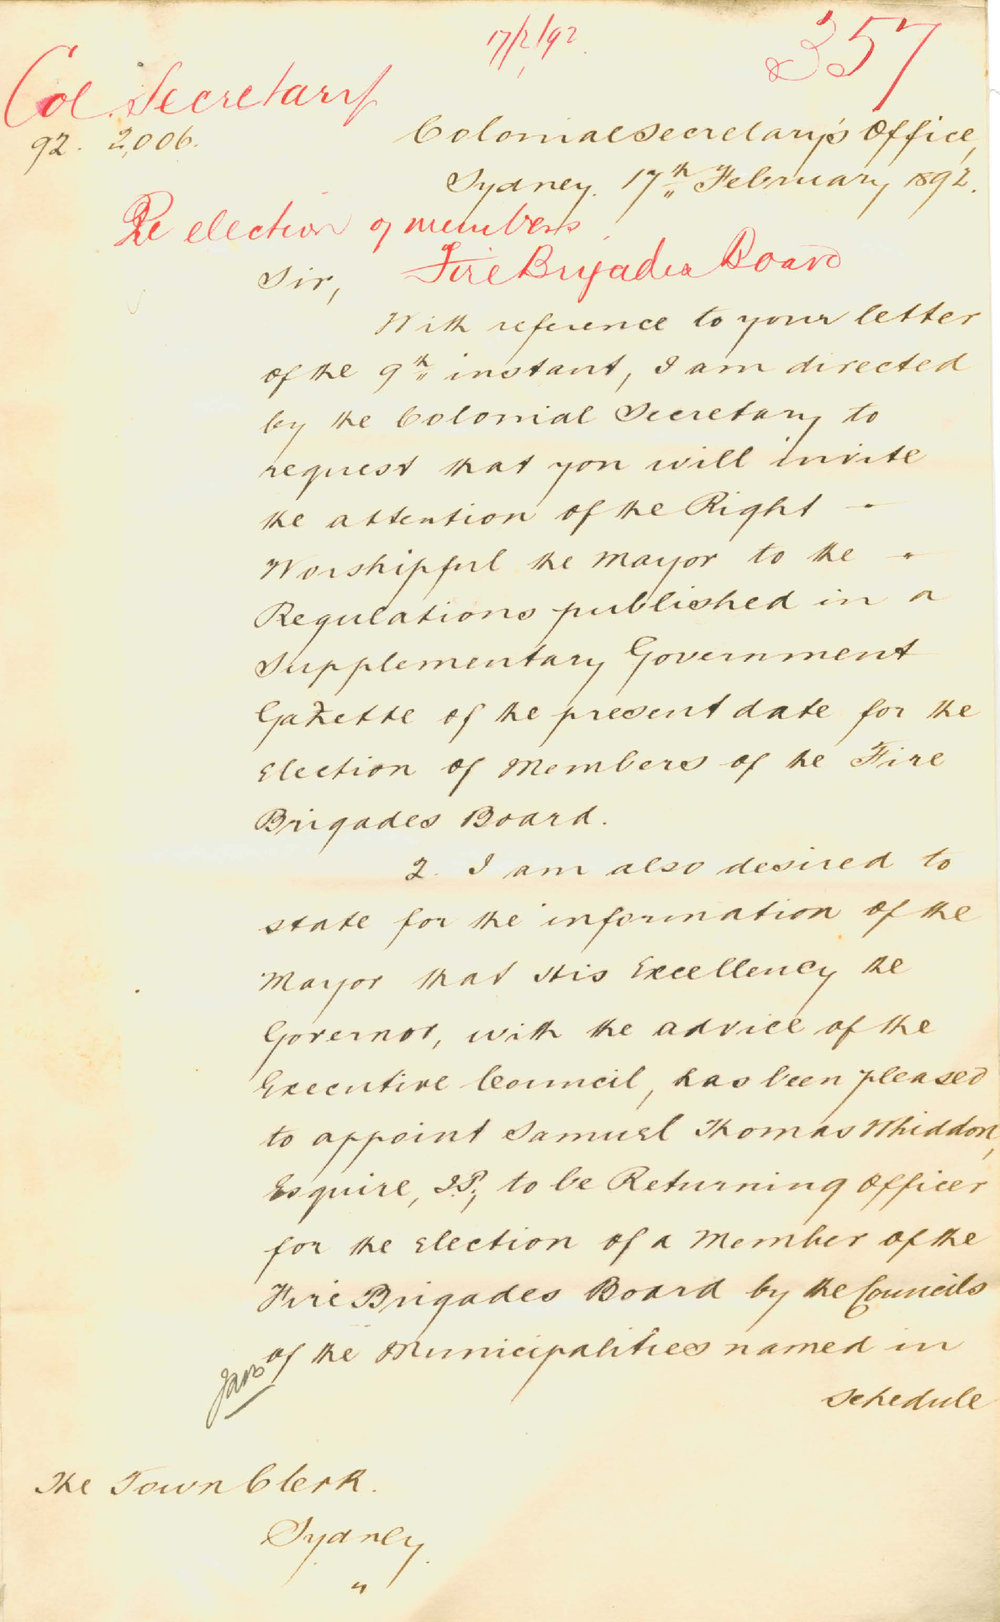 17/2/92
357
Col. Secretary
92. 2,006.
Colonial Secretary's Office,
Sydney. 17th February 1892.
Re election of members
Fire Brigades Board
Sir,
With reference to your letter
of the 9th instant, I am directed
by the Colonial Secretary to
request that you will invite
the attention of the Right -
Worshipful the Mayor to the -
Regulations published in a
Supplementary Government
Gazette of the present date for the
Election of Members of the Fire
Brigades Board.
2. I am also desired to
state for the information of the
Mayor that His Excellency the
Governor, with the advice of the
Executive Council, has been pleased
to appoint Samuel Thomas Whiddon,
Esquire, J.P., to be Returning Officer
for the Election of a Member of the
Fire Brigades Board by the Councils
of the Municipalities named in
Schedule
The Town Clerk.
Sydney.
"